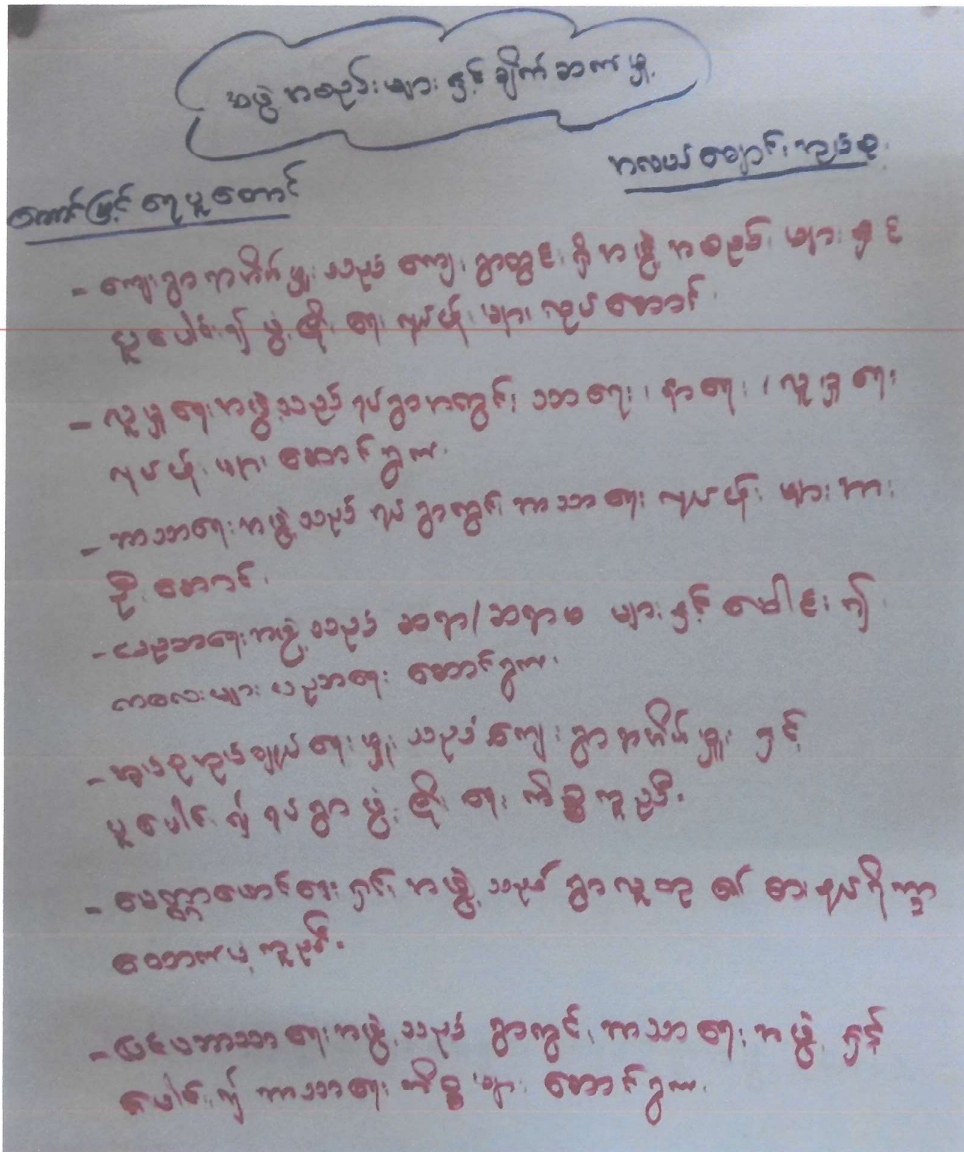 အဖွဲ့အစည်းများနှင့်ချိတ်ဆက်မှု
အလယ်ချောင်းအုပ်စု
ကောင်းမြင့်ရေပူတောင်
- ကျေးရွာအကြီးမှူးသည် ကျေးရွာတွင်းရှိ အဖွဲ့အစည်းများနှင့်
ပူပေါင်း၍ ဖွံ့ဖြိုးရေးလုပ်ငန်းများ လုပ်ဆောင်
- လူမှုရေးအဖွဲ့သည် ရပ်ရွာအတွင်း သာရေး၊ နာရေး၊ လူမှုရေး
လုပ်ငန်းများ ဆောင်ရွက်
- ဘာသာရေးအဖွဲ့သည် ရပ်ရွာတွင်း ဘာသာရေးလုပ်ငန်းများအား
ဦးဆောင်
- ပညာရေးအဖွဲ့သည် ဆရာ/ဆရာမ များနှင့် ပေါင်း၍
ကလေးများ ပညာရေး ဆောင်ရွက်
- အုပ်ချုပ်ရေးမှူးသည် ကျေးရွာအကြီးမှူးနှင့်
ပူပေါင်း၍ ရပ်ရွာဖွံ့ဖြိုးရေး ကိစ္စကူညီ
- မေတ္တာမောင်နှင်း အဖွဲ့သည် ရွာလူထု၏ စားနပ်ရိက္ခာ
ဝေဘာမှုကူညီ
- ဘာသာရေးအဖွဲ့သည် ရွာတွင်း ဘာသာရေးအဖွဲ့နှင့်
ပေါင်း၍ ဘာသာရေး ကိစ္စများ ဆောင်ရွက်